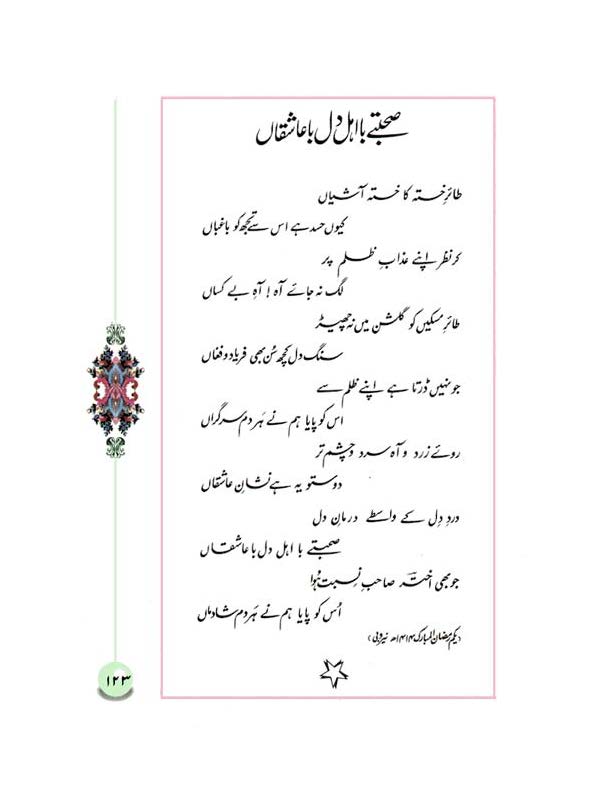 صحبتے با اہل دل با عاشقاں
طائرِ خستہ کا خستہ آشیاں
کیوں حسد ہے اس سے تجھ کو باغباں
کر نظر اپنے عذابِ ظلم پر
لگ نہ جائے آہ ! آہِ بے کساں
طائرِ مسکیں کو گلشن میں نہ چھیڑ
سنگ دل کچھ سُن بھی فریاد و فغاں
جو نہیں ڈرتا ہے اپنے ظلم سے
اس کو پایا ہم نے ہر دم سرگراں
روئے زرد و آہ سرد و چشمِ تر
دوستو یہ ہے نشانِ عاشقاں
دردِ دِل کے واسطے درمانِ دل
صحبتے با اہل دل با عاشقاں
جو بھی اختر صاحبِ نسبت ہُوا
اُس کو پایا ہم نے ہر دم شادماں
(یکم رمضان المبارک ۱۴۱۴ھ نیروبی)
۱۲۳